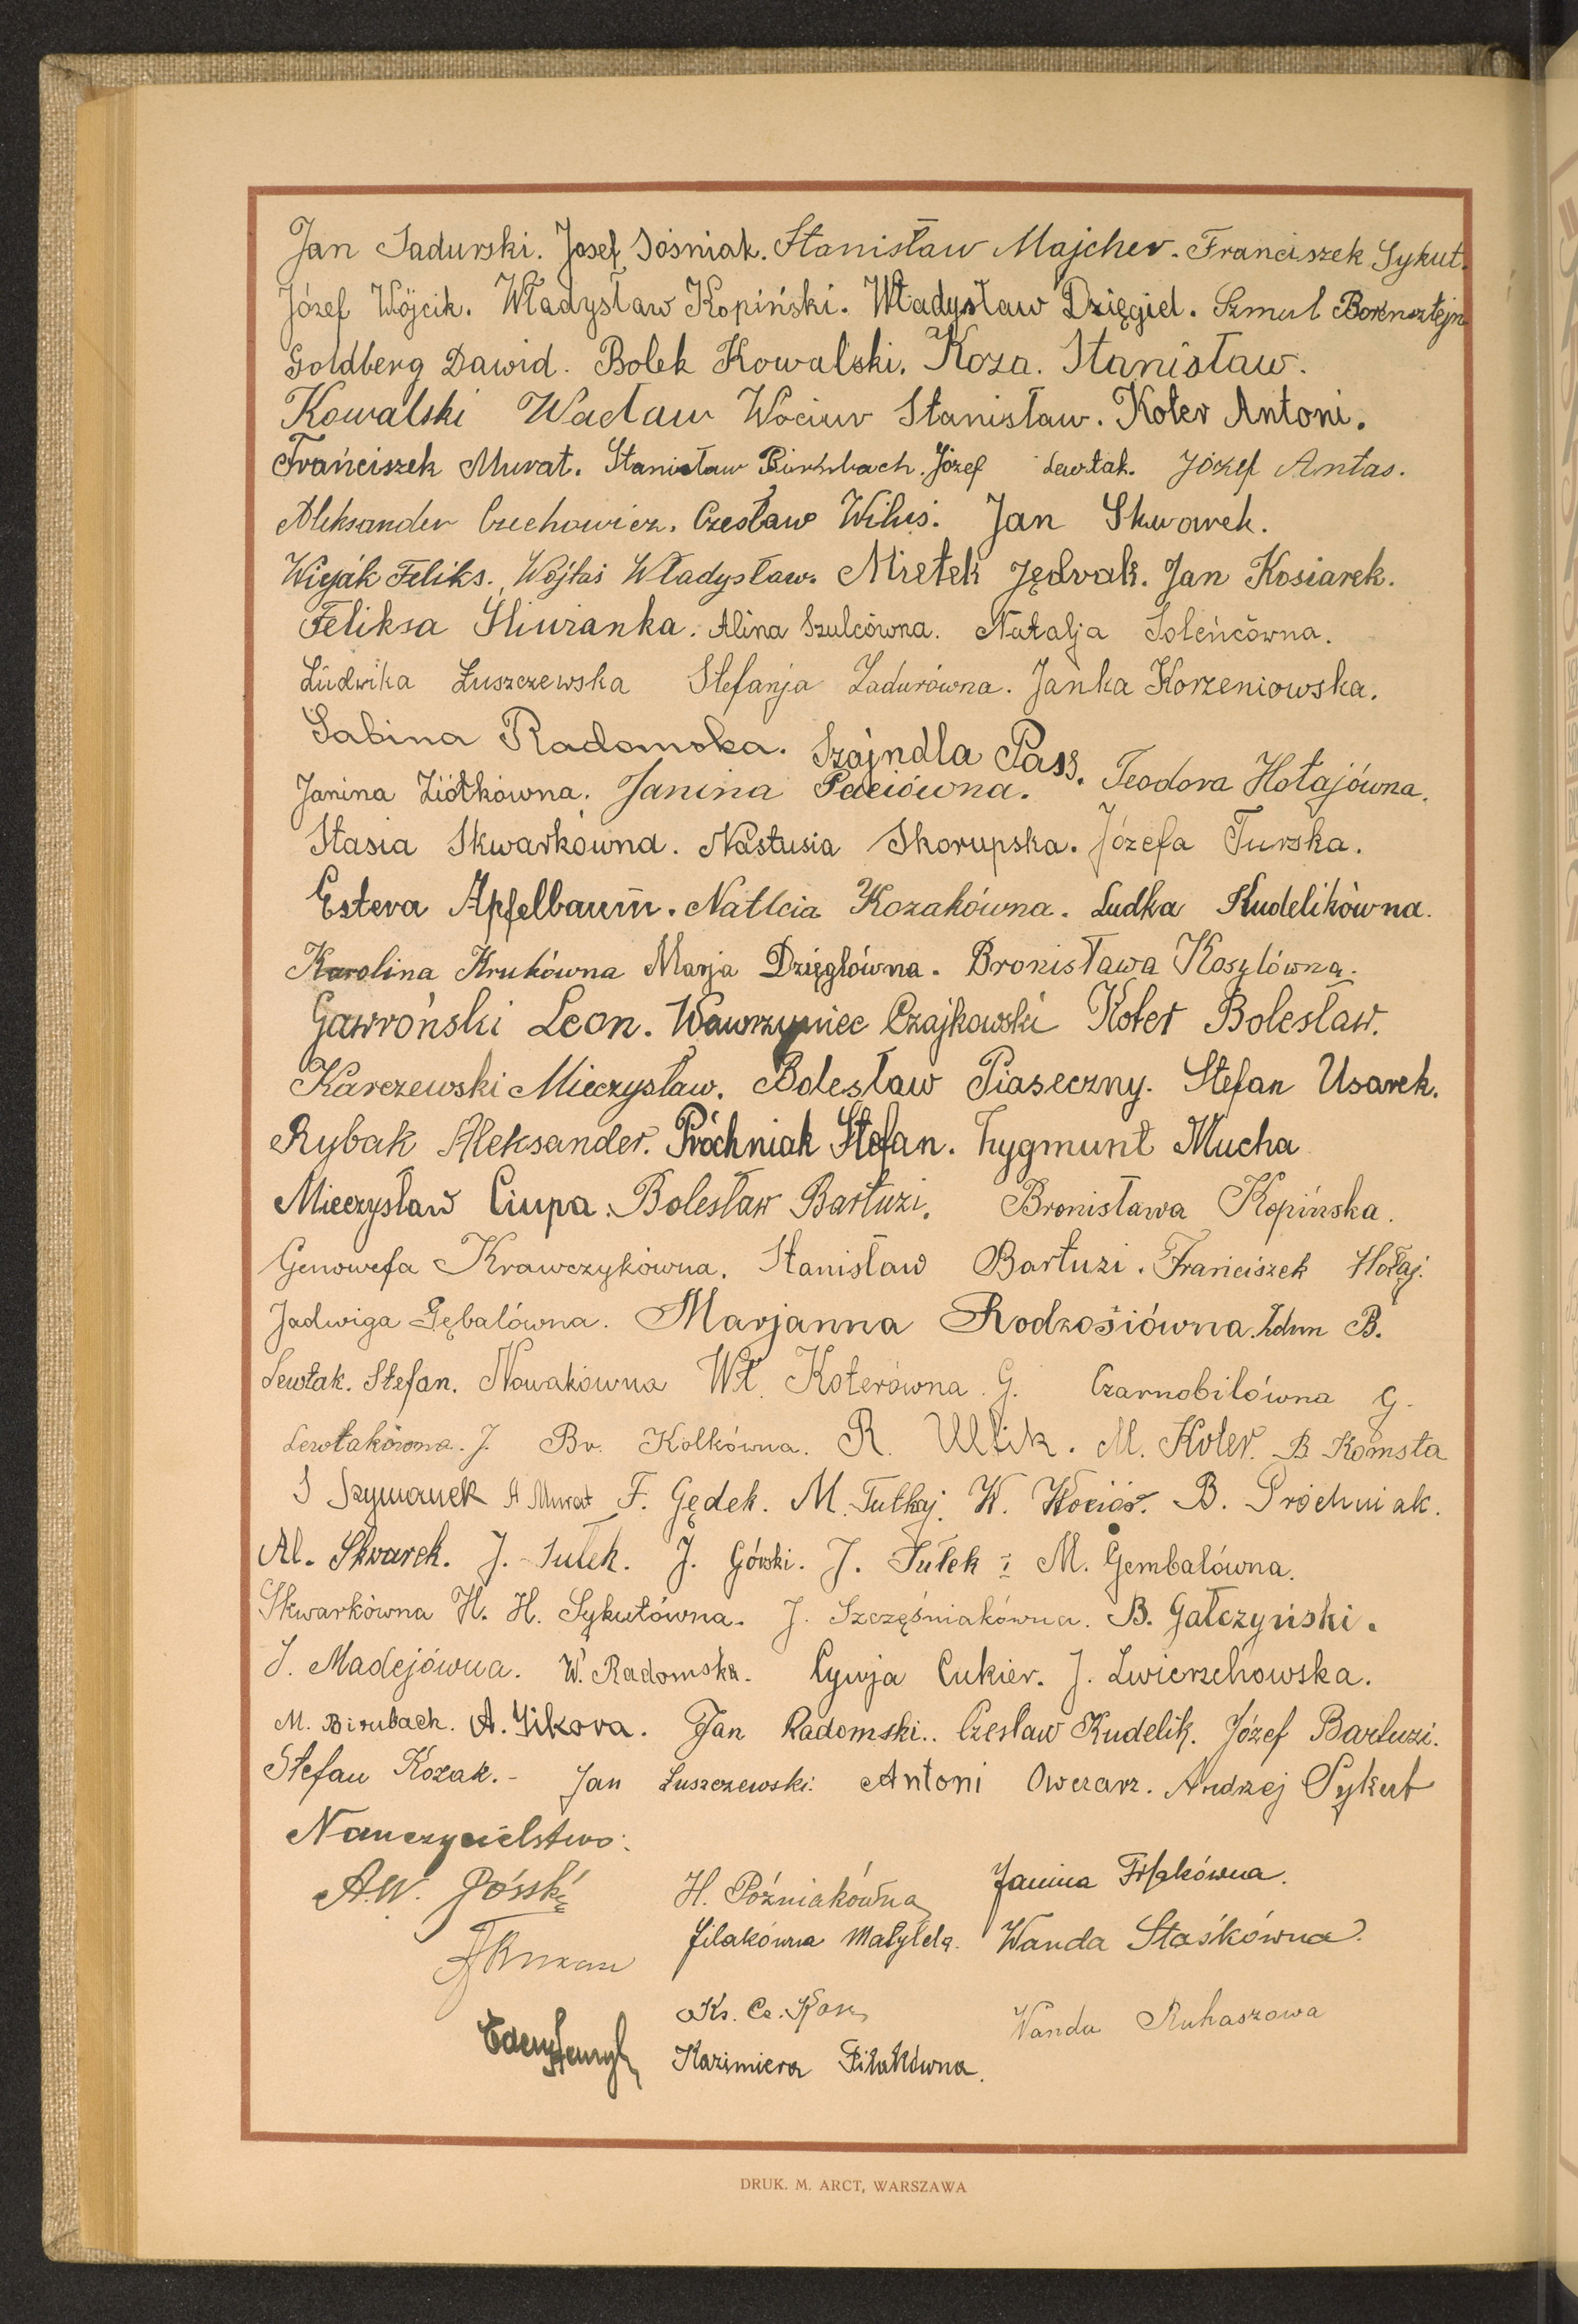 Jan Sadurski. Josef Sośniak. Stanisław Majcher. Franciszek Sykut.
Józef Wójcik. Władysław Kopiński. Władysław Dzięgiel. Szmul Borensztejn
Goldberg Dawid. Bolek Kowalski. Koza. Stanisław.
Kowalski Wacław Wociur Stanisław. Koter Antoni.
Franciszek Murat. Stanisław Birnbach. Józef Lewtak. Józef Antas.
Aleksander Czechowicz. Czesław Wiluś. Jan Skwarek.
Wiejak Feliks. Wojtaś Władysław. Mietek Jędrak. Jan Kosiarek.
Feliksa Śliwianka. Alina Szulcówna. Natalja Soleńcówna.
Ludwika Łuszczewska Stefanja Zadurówna. Janka Korzeniowska.
Sabina Radomska. Szajndla Pass.
Janina Ziółkówna. Janina Paciówna. Teodora Hołajówna.
Stasia Skwarkówna. Nastusia Skorupska. Józefa Turska.
Estera Apfelbaum. Natlcia Kozakówna. Ludka Kudelikówna.
Karolina Krukówna Marja Dzięglówna. Bronisława Kosylówna.
Gawroński Leon. Wawrzyniec Czajkowski Koter Bolesław.
Karczewski Mieczysław. Bolesław Piaseczny. Stefan Usarek.
Rybak Aleksander. Próchniak Stefan. Zygmunt Mucha
Mieczysław Ciupa. Bolesław Bartuzi. Bronisława Kopińska.
Genowefa Krawczykówna. Stanisław Bartuzi. Franciszek Hołaj.
Jadwiga Gębalówna. Marjanna Rodzosiówna. B.
Lewtak. Stefan. Nowakówna Wł. Koterówna. G. Czarnobilówna G.
Lewtakówna. J. Br. Kołkówna. R. Ulik. M. Koter. B Komsta
S Szymanek A Murat F. Gędek. M. Tutkaj. W. Wociór. B. Próchniak.
Al. Skwarek. J. Sułek. J. Górski. J. Sułek i M. Gembalówna.
Skwarkówna H. H. Sykutówna. J. Szczęśniakówna. B. Gałczyński.
J. Madejówna. W. Radomska. Cywja Cukier. J. Zwierzchowska.
M. Birnbach. A. Sikora. Jan Radomski.. Czesław Kudelik. Józef Bartuzi.
Stefan Kozak.- Jan Łuszczewski. Antoni Owczarz. Andrzej Sykut
Nauczycielstwo:
A.W. Górski H. Późniakówna Janina Filakówna.
Filakówna Matylda. Wanda Staśkówna.
Ks. Wanda Ruhaszowa
Kazimiera Filakówna.
DRUK. M. ARCT, WARSZAWA